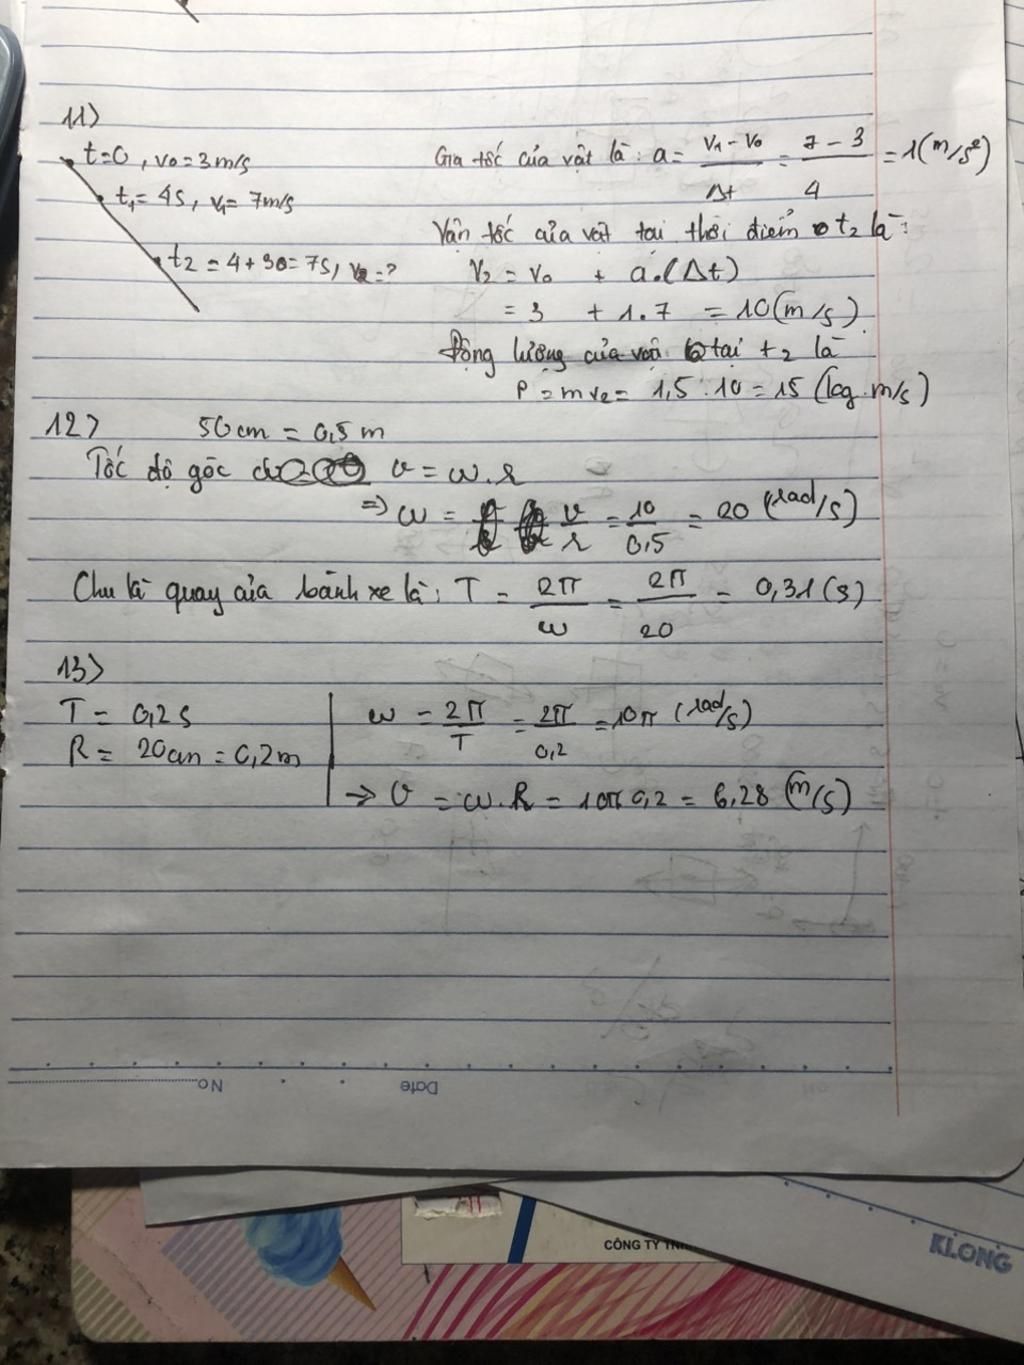 11)
t=0, v0=3m/s
t1=4s, v1=7m/s
t2=4+30=7s, v2=?
Gia tốc của vật là: a= (v1-v0)/Δt = (7-3)/4 = 1(m/s²)
Vận tốc của vật tại thời điểm t2 là:
V2 = V0 + a.(Δt)
= 3 + 1.7 = 10(m/s)
Động lượng của vật tại t2 là
P = mv2 = 1,5.10 = 15 (kg.m/s)
12) 50cm = 0,5m
Tốc độ góc v = ω.r
=> ω = v/r = 10/0,5 = 20 (rad/s)
Chu kì quay của bánh xe là: T = 2π/ω = 2π/20 = 0,31(s)
13)
T = 0,2s
R = 20cm = 0,2m
ω = 2π/T = 2π/0,2 = 10π (rad/s)
-> v = ω.R = 10π 0,2 = 6,28 (m/s)
No
Date
CÔNG TY TNHH
KLONG